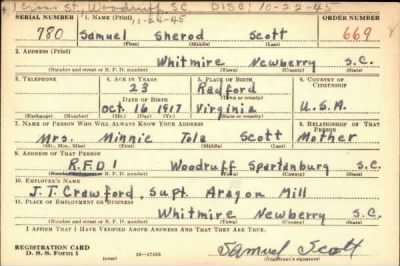 1 Cross St, Woodruff, SC DISC: 10-22-45
10-24-45
SERIAL NUMBER 1. NAME (Print) ORDER NUMBER
780 Samuel Sherod Scott 669
(First) (Middle) (Last)
2. ADDRESS (Print)
Whitmire Newberry S.C.
(Number and street or R. F. D. number) (Town) (County) (State)
3. TELEPHONE 4. AGE IN YEARS 5. PLACE OF BIRTH 6. COUNTRY OF CITIZENSHIP
23 Radford
DATE OF BIRTH (Town or county)
Oct. 16 1917 Virginia U.S.A.
(Exchange) (Number) (Mo.) (Day) (Yr.) (State or country)
7. NAME OF PERSON WHO WILL ALWAYS KNOW YOUR ADDRESS 8. RELATIONSHIP OF THAT PERSON
Mrs. Minnie Tola Scott Mother
(Mr., Mrs., Miss) (First) (Middle) (Last)
9. ADDRESS OF THAT PERSON
R.F.D 1 Woodruff Spartanburg S.C.
(Number and street or R. F. D. number) (Town) (County) (State)
10. EMPLOYER'S NAME
J.T. Crawford, Supt. Aragon Mill
11. PLACE OF EMPLOYMENT OR BUSINESS
Whitmire Newberry S.C.
(Number and street or R. F. D. number) (Town) (County) (State)
I AFFIRM THAT I HAVE VERIFIED ABOVE ANSWERS AND THAT THEY ARE TRUE.
REGISTRATION CARD
D. S. S. Form 1 Samuel Scott
(Registrant's signature)